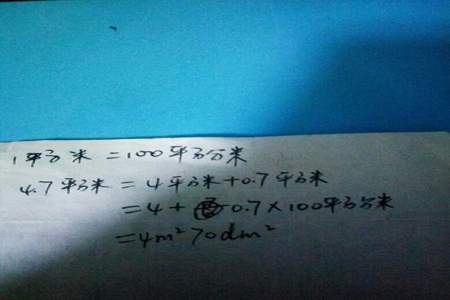 1平方米=100平方分米
4.7平方米=4平方米+0.7平方米
=4+0.7×100平方分米
=4m²70dm²